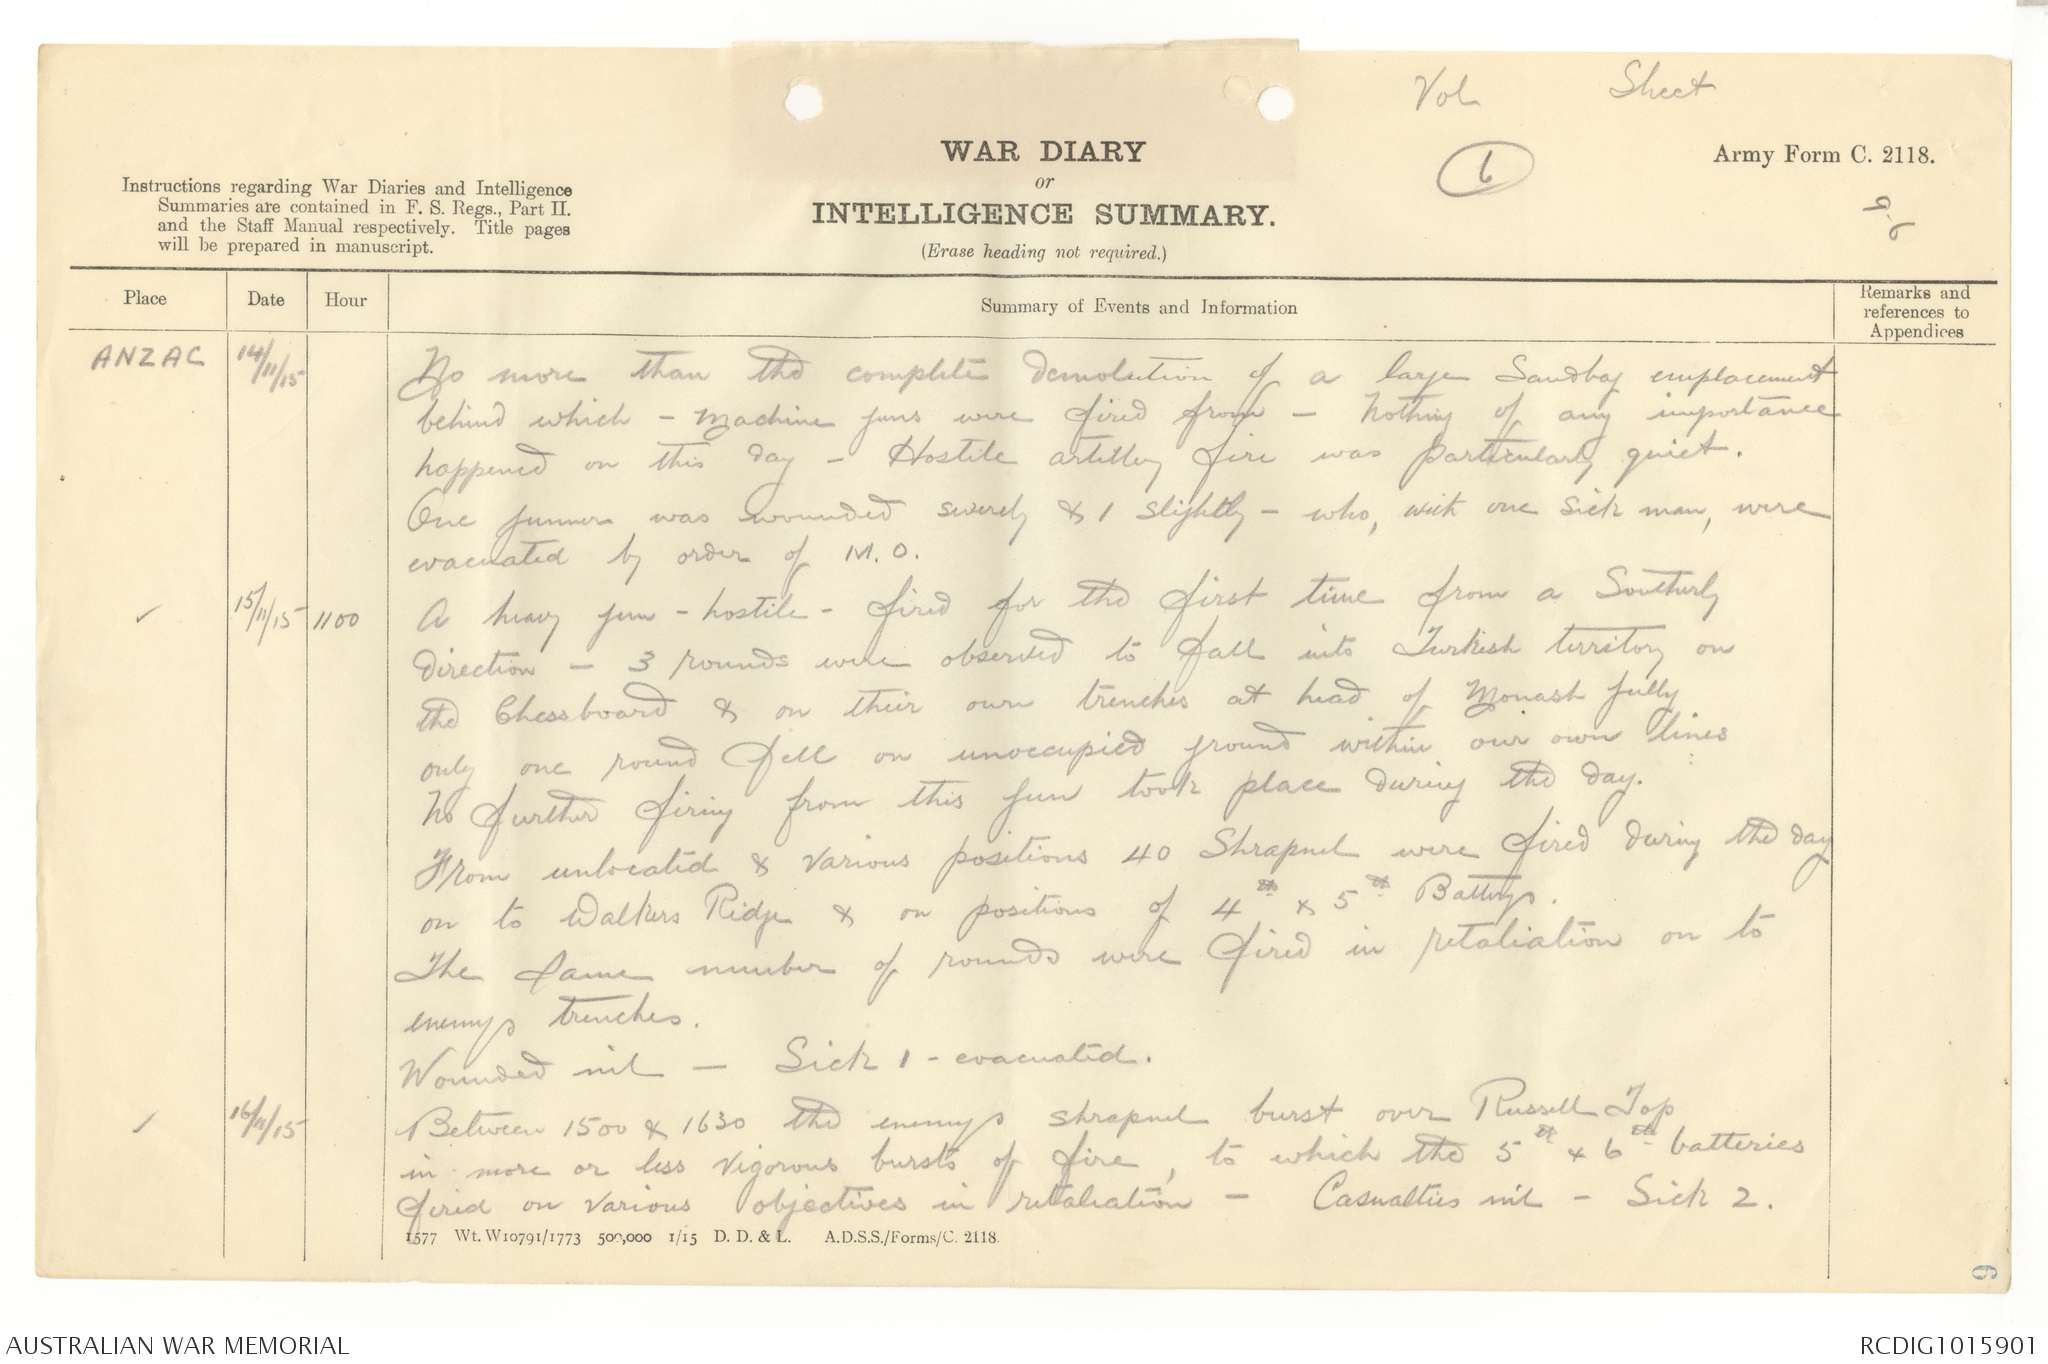 Vol Sheet
WAR DIARY
or
INTELLIGENCE SUMMARY.
(Erase heading not required.)
6
Army Form C. 2118.
Instructions regarding War Diaries and Intelligence
Summaries are contained in F. S. Regs., Part II.
and the Staff Manual respectively. Title pages
will be prepared in manuscript.
Place Date Hour Summary of Events and Information Remarks and references to Appendices
ANZAC 14/11/15 No more than the complete demolution of a large Sandbag emplacement
behind which – machine guns were fired from – Nothing of any importance
happened on this day – Hostile artillery fire was particularly quiet.
One gunner was wounded severely & 1 slightly – who, with one sick man, were
evacuated by order of M.O.
✓ 15/11/15 1100 A heavy gun – hostile – fired for the first time from a Southerly
direction – 3 rounds were observed to fall into Turkish territory on
the Chessboard & on their own trenches at head of Monash gully
only one round fell on unoccupied ground within our own lines
No further firing from this gun took place during the day.
From unlocated & various positions 40 Shrapnel were fired during the day
on to Walkers Ridge & on positions of 4th & 5th Batterys.
The same number of rounds were fired in retaliation on to
enemys trenches.
Wounded nil – Sick 1 – evacuated.
✓ 16/11/15 Between 1500 & 1630 the enemys shrapnel burst over Russell Top
in more or less vigorous bursts of fire, to which the 5th & 6th batteries
fired on various objectives in retaliation – Casualties nil – Sick 2.
1577 Wt. W10791/1773 500,000 1/15 D. D. & L. A.D.S.S./Forms/C. 2118.
9
AUSTRALIAN WAR MEMORIAL
RCDIG1015901